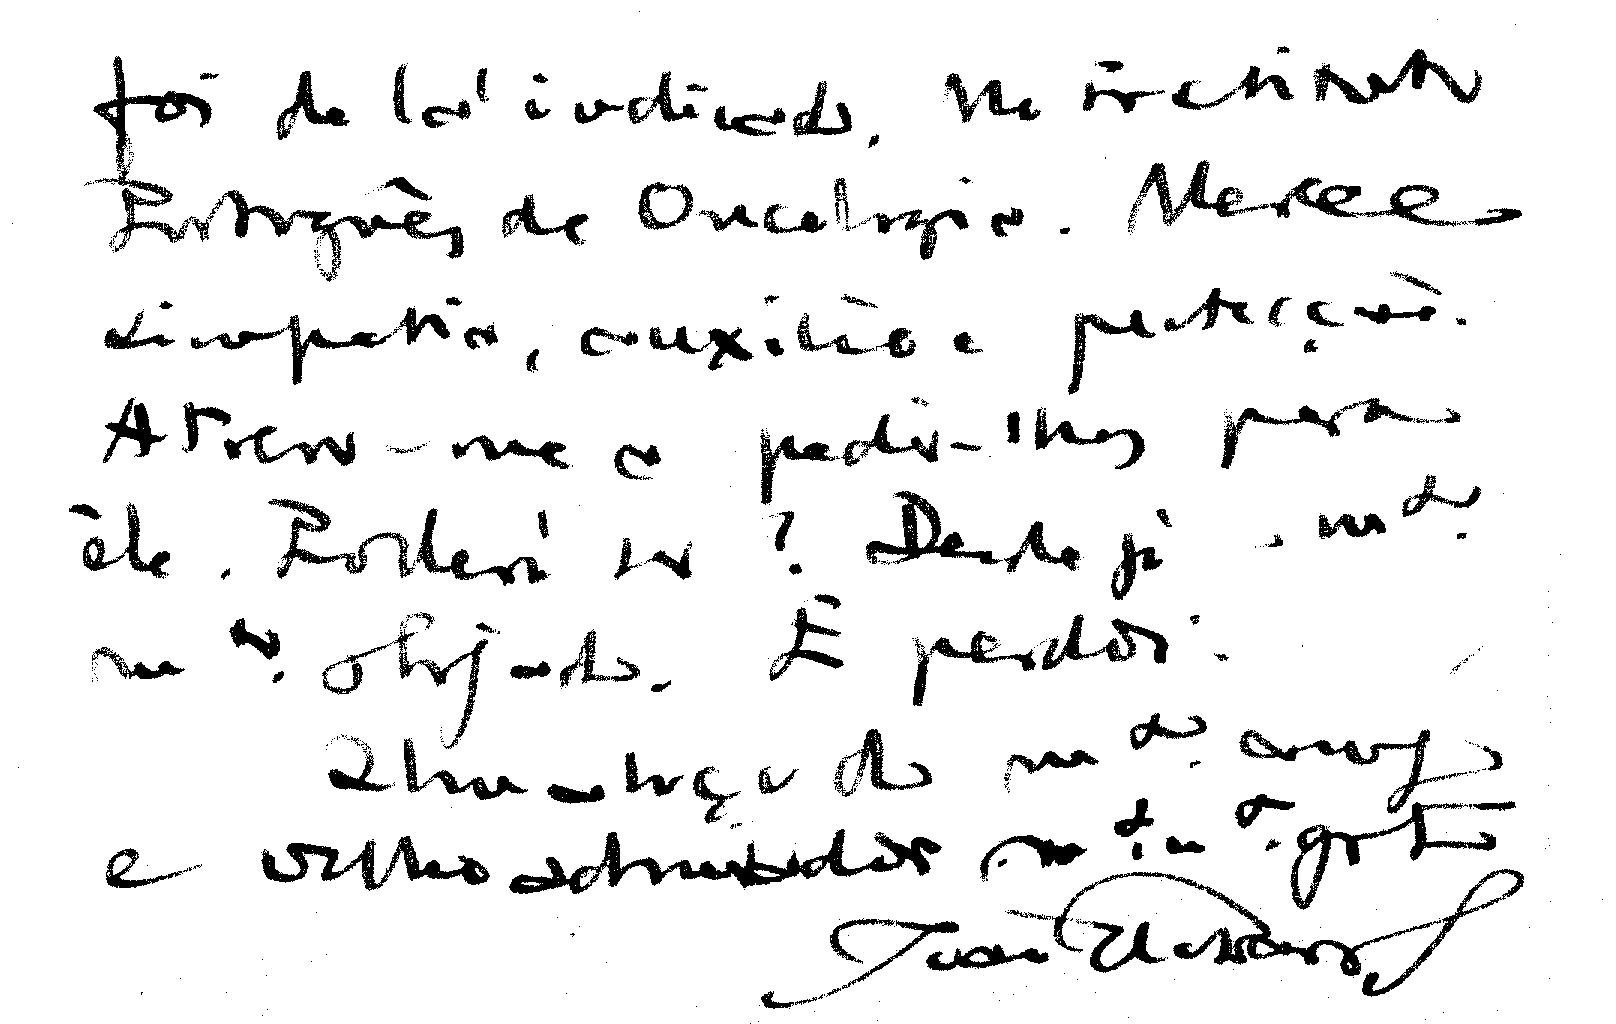 foi de lá indicado. No instituto
Português de Oncologia. Merece
simpatia, auxílio e protecção.
Atrevo-me a pedir-lhos para
êle. Poderá ser? Desde já m.to
m.to obrigado. E perdôi.
Um abraço do m.to amigo
e velho admirador m.to m.to grato
João